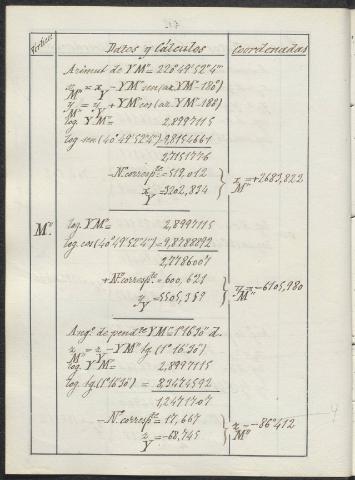 Vértice
Datos y Cálculos
Coordenadas
Azimut de YMᵛ = 220°49'52"4'''
x Mᵛ = x Y − YMᵛ sen (az. YMᵛ − 180°)
y Mᵛ = y Y + YMᵛ cos (az. YMᵛ − 180)
log. YMᵛ = 2,8997115
log. sen (40°49'52"4''') = 9,8154661
2,7151776
− Nº. corresp.ᵗᵉ = 519,012
x Y = 3202,834
x Mᵛ = +2683,822
Mᵛ.
log. YMᵛ = 2,8997115
log. cos (40°49'52"4''') = 9,8788892
2,7786007
+ Nº. corresp.ᵗᵉ = 600,621
y Y = 5505,359
y Mᵛ = −6105,980
Ang.º de pend.ᵗᵉ YMᵛ = 1°16'30" d.
z Mᵛ = z Y − YMᵛ tg. (1°16'30")
log. YMᵛ = 2,8997115
log. tg. (1°16'30") = 8,3474592
1,2471707
− Nº. corresp.ᵗᵉ = 17,667
z Y = −68,745
z Mᵛ = −86,412